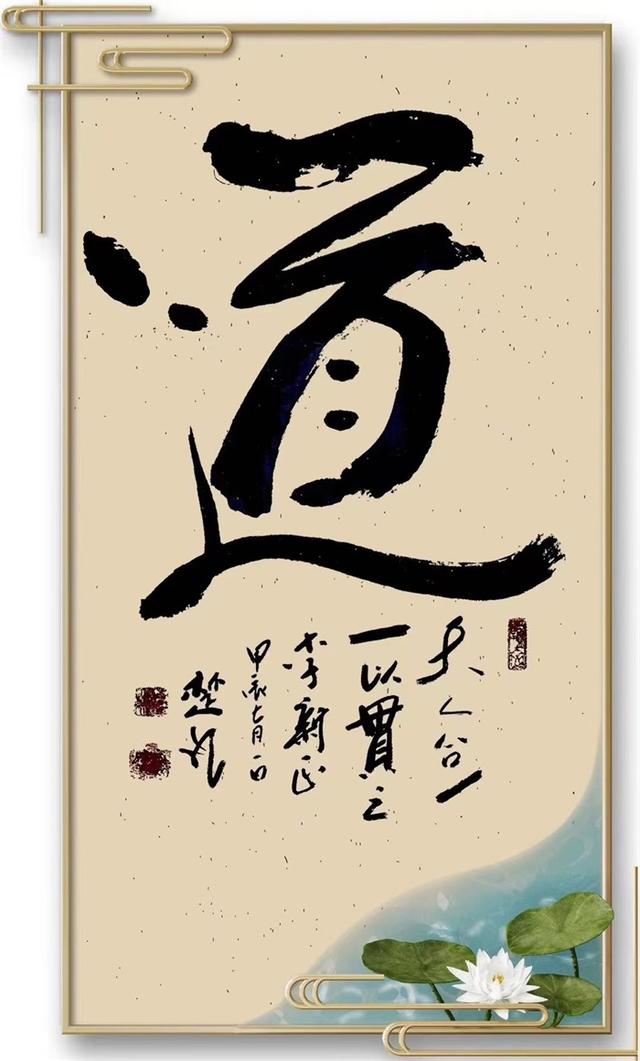 道
天人合一
一以貫之
李新正
甲辰七月一日